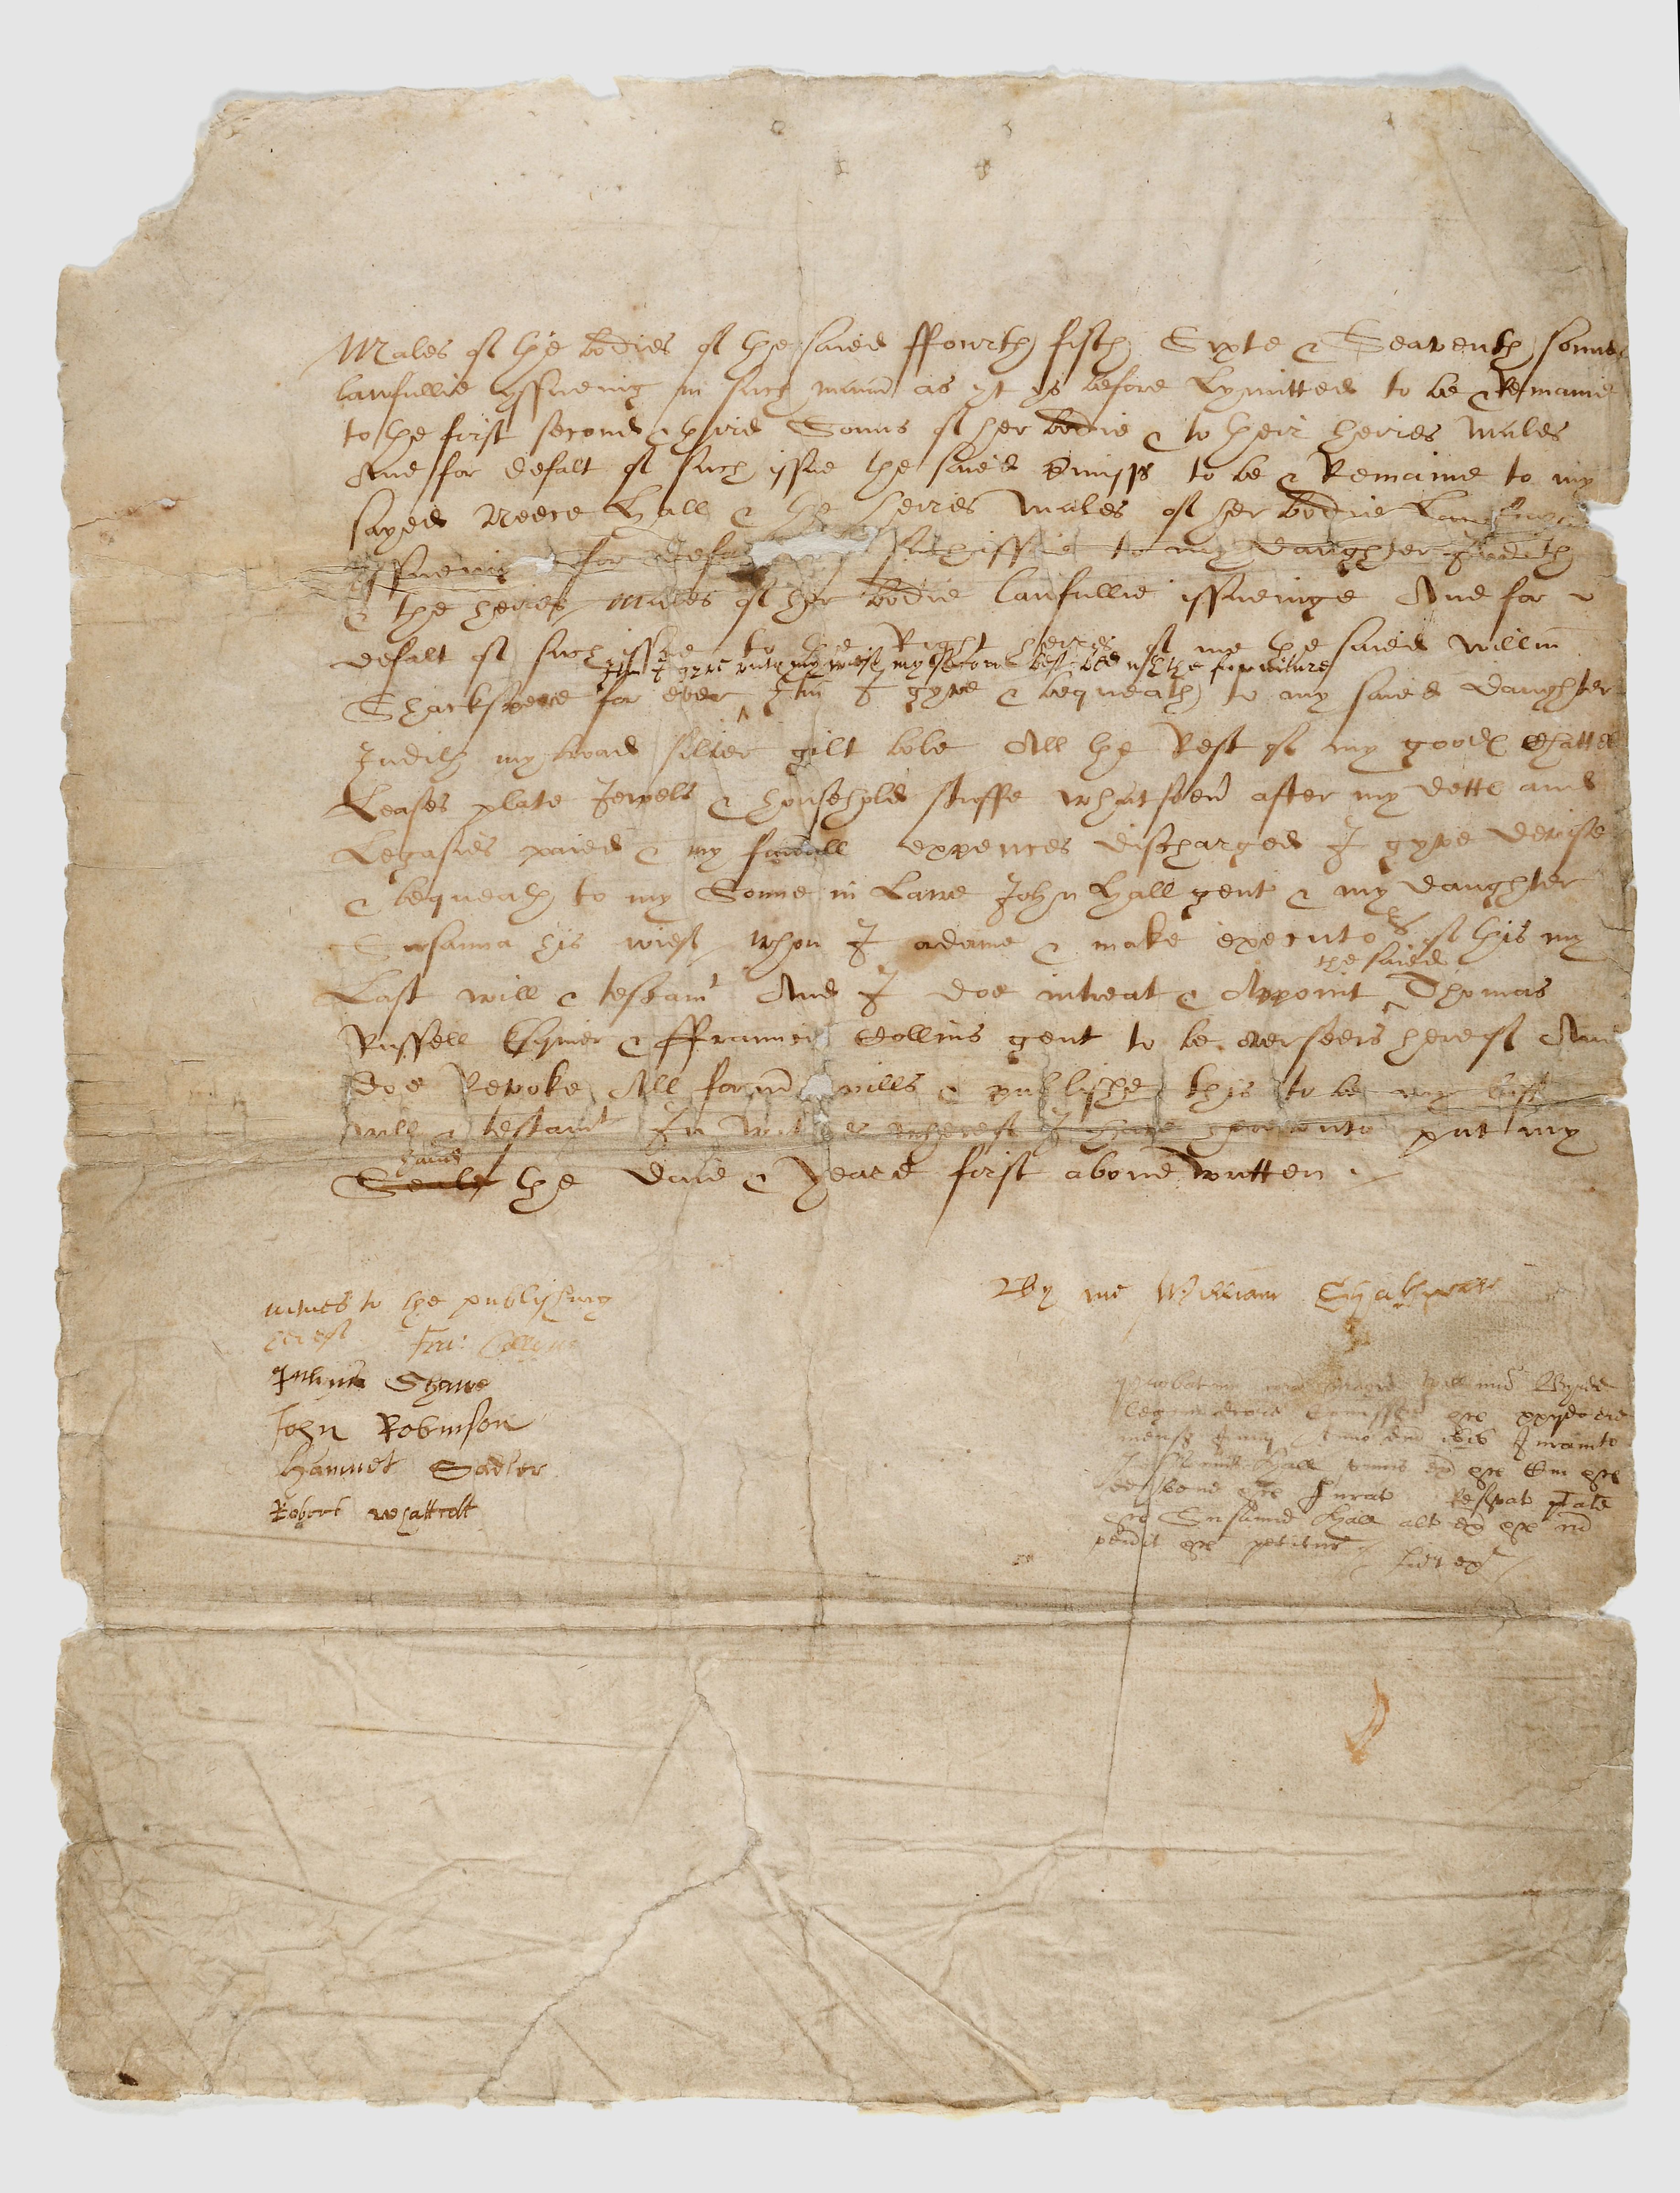 Males of the bodies of the saied ffourth fifth Sixte & Seaventh sonnes
lawfullie yssueing in such mann as yt ys before Lymitted to be & Remaine
to the first second & third Sonns of her bodie & to their heires Males
And for defalt of such issue the saied pmisss to be & Remaine to my
sayed Neece Hall & the heires Males of her bodie Lawfully
yssueing for defa such issue to my daughter Judith
& the heires Males of her bodie lawfullie issueinge And for
defalt of such issue to the Right heires of me the saied willm
Itm I gyve unto my wief my second best bed wth the furniture
Shackspere for ever Itm I gyve & bequeath to my saied daughter
Judith my broad silver gilt bole All the Rest of my goodes Chattel
Leases plate Jewels & household stuffe whatsoev after my dettes and
Legasies paied & my funerall expences discharged I gyve devise
& bequeath to my Sonne in Lawe John Hall gent & my daughter
Susanna his wief whom I ordaine & make executors of this my
Last will & testamt And I doe intreat & Appoint the saied Thomas
Russell Esquier & ffrauncis Collins gent to be overseers hereof And
doe Revoke All formr wills & publishe this to be my last
will & testamt In witnes whereof I have hereunto put my
hand
Seale the daie & Yeare first above written
witnes to the publishing
hereof Fra: Collyns
Julius Shawe
John Robinson
Hamnet Sadler
Robert whattcott
By me William Shakspeare